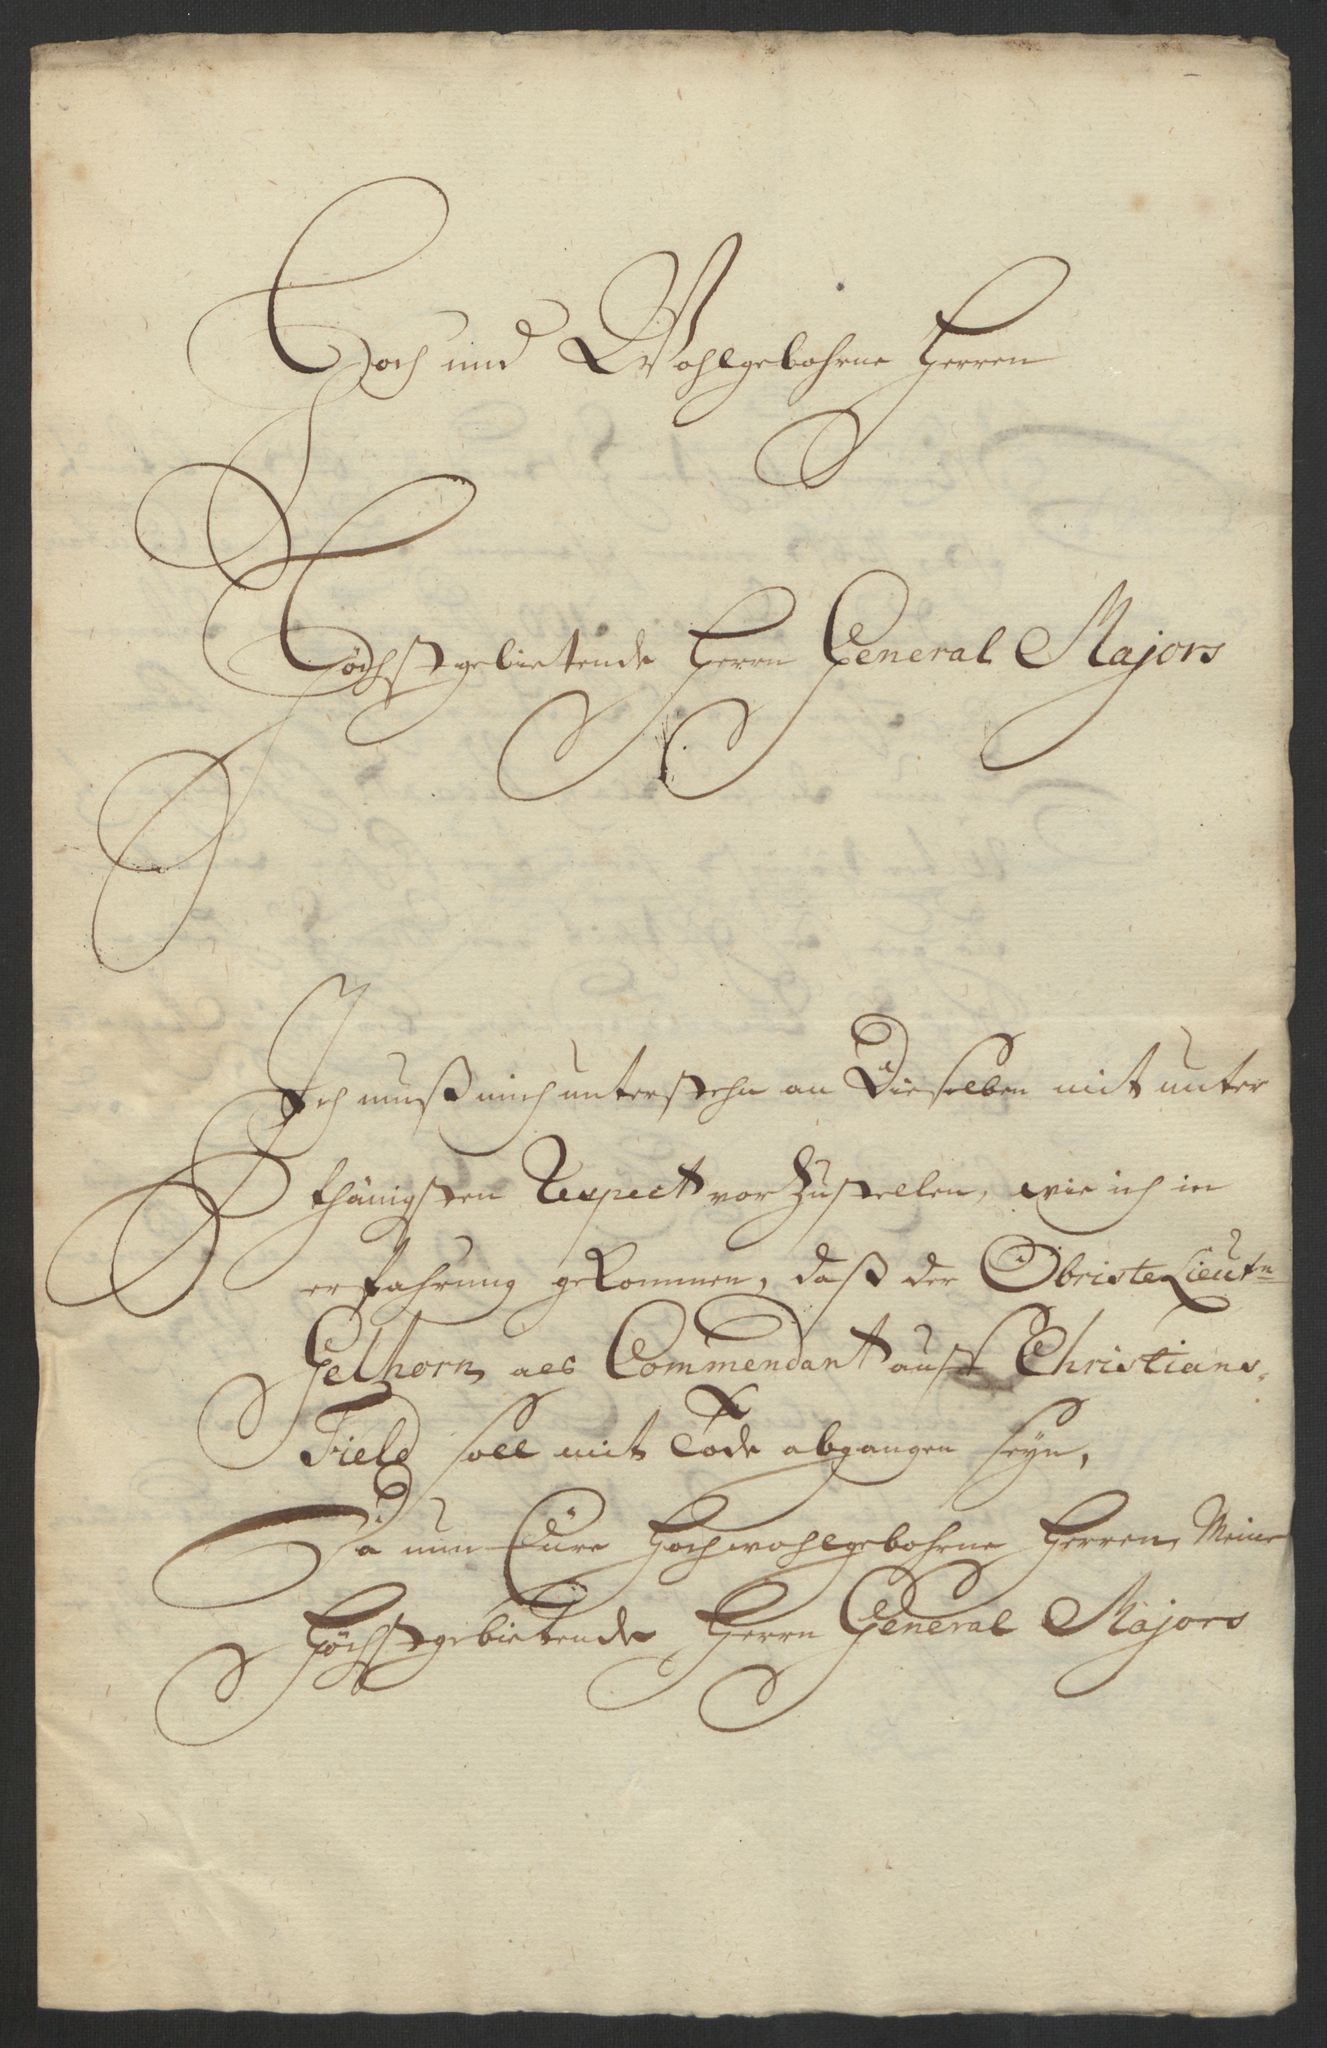 Hoch und Wohlgebohrne Herren
Höchstgebietende Herrn General Majors
Ich muß mich unterstehn an Dieselben mit unter
thänigsten Respect vorzustellen, wie ich in
erfahrung gekommen, daß der Obriste Lieutn
Gelhorn als Commendant auf Christians-
Field soll mit Tode abgangen seyn,
Da nun Eüre Hochwohlgebohrne Herren, Meine
Höchstgebietende Herrn General Majors